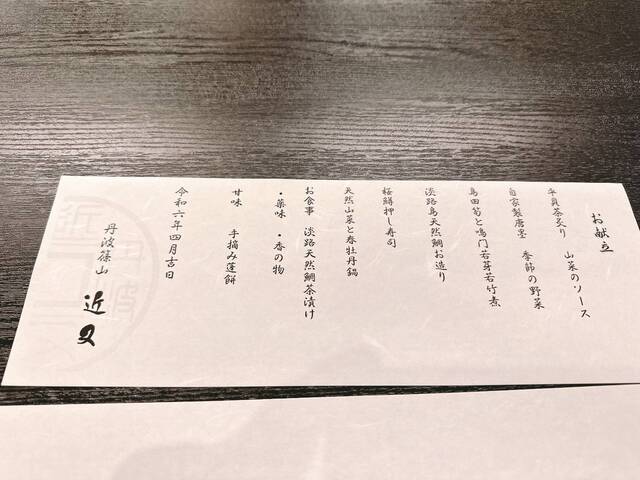 お献立
平貝茶炙り 山菜のソース
自家製唐墨 季節の野菜
鳥田筍と鳴門若芽若竹煮
淡路島天然鯛お造り
桜鱒押し寿司
天然山菜と春牡丹鍋
お食事 淡路天然鯛茶漬け
・薬味 ・香の物
甘味 手摘み蓬餅
令和六年四月吉日
丹波篠山 近又